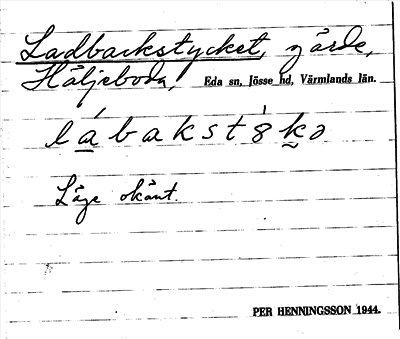 Ladbackstycket, gärde,
Häljeboda, Eda sn, Jösse hd, Värmlands län.
lábakst8́kə
Läge okänt.
PER HENNINGSSON 1944.